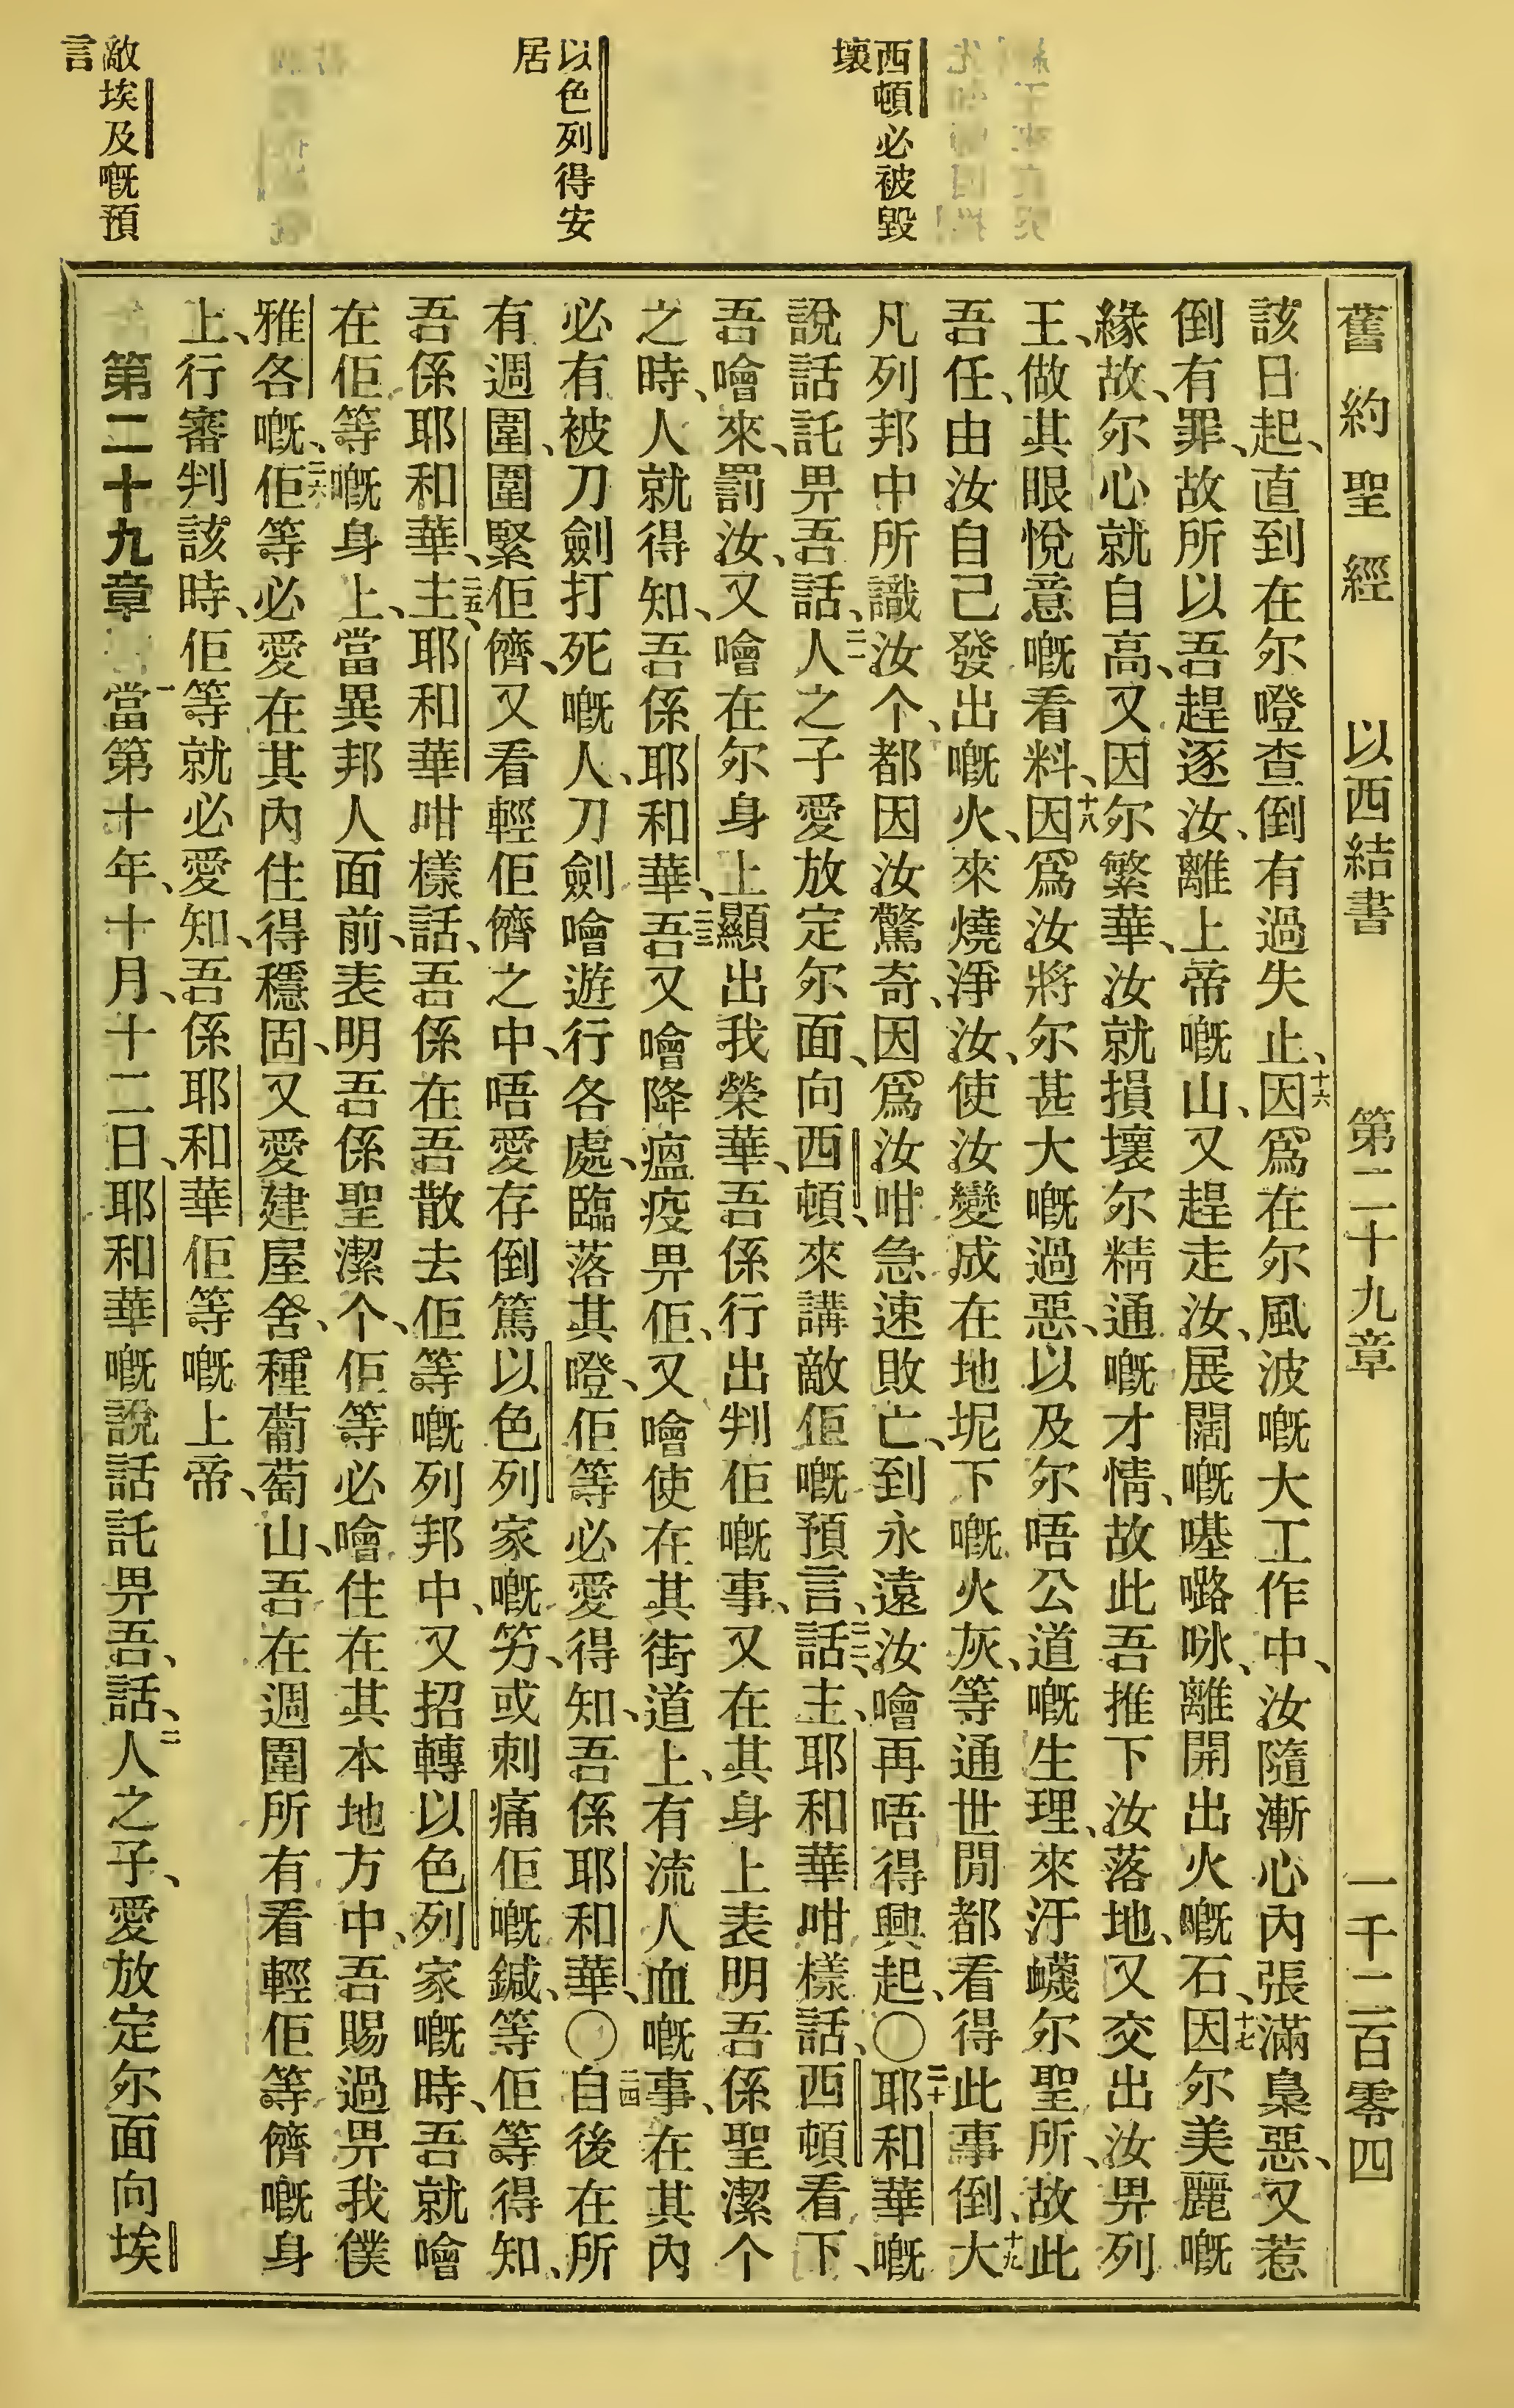 舊約聖經　以西結書　第二十九章　一千二百零四
該日起、直到在尔噔查倒有過失止、十六因爲在尔風波嘅大工作中、汝隨漸心內張滿梟惡、又惹
倒有罪、故所以吾趕逐汝、離上帝嘅山、又趕走汝、展闊嘅𠹌㗝咏、離開出火嘅石、十七因尔美麗嘅
緣故、尔心就自高、又因尔繁華、汝就損壞尔精通嘅才情、故此吾推下汝落地、又交出汝畀列
王、做其眼悅意嘅看料、十八因爲汝將尔甚大嘅過惡、以及尔唔公道嘅生理、來汙衊尔聖所、故此
吾任、由汝自己發出嘅火、來燒淨汝、使汝變成在地坭下嘅火灰、等通世閒都看得此事倒、十九大
凡列邦中所識汝个、都因汝驚奇、因爲汝咁急速敗亡、到永遠汝噲再唔得興起、〇二十耶和華嘅
說話託畀吾話、二一人之子愛放定尔面、向西頓、來講敵佢嘅預言、二二話、主耶和華咁樣話、西頓看下、
吾噲來、罰汝、又噲在尔身上顯出我榮華、吾係行出判佢嘅事、又在其身上表明吾係聖潔个
之時、人就得知、吾係耶和華、二三吾又噲降瘟疫畀佢、又噲使在其街道上、有流人血嘅事、在其內
必有被刀劍打死嘅人、刀劍噲遊行各處、臨落其噔、佢等必愛得知、吾係耶和華、〇二四自後在所
有週圍、圍緊佢儕、又看輕佢儕之中、唔愛存倒篤以色列家嘅竻、或刺痛佢嘅鍼、等佢等得知、
吾係耶和華、二五主、耶和華咁樣話、吾係在吾散去佢等嘅列邦中、又招轉以色列家嘅時、吾就噲
在佢等嘅身上、當異邦人面前、表明吾係聖潔个、佢等必噲住在其本地方中、吾賜過畀我僕
雅各嘅、二六佢等必愛在其內住得穩固、又愛建屋舍、種葡萄山、吾在週圍所有看輕佢等儕嘅身
上、行審判該時、佢等就必愛知、吾係耶和華佢等嘅上帝、
第二十九章　一當第十年、十月、十二日、耶和華嘅說話託畀吾、話、二人之子、愛放定尔面向埃
西頓必被毀
壞
以色列得安
居
敵埃及嘅預
言